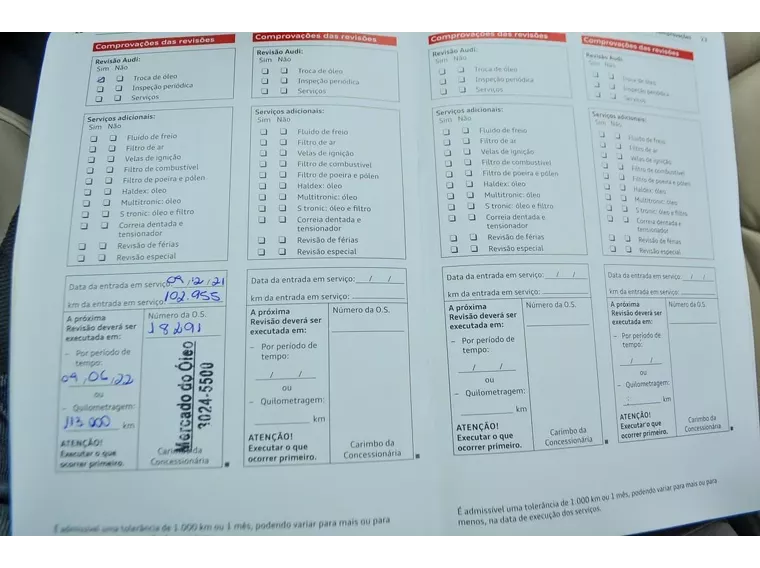 Comprovações das revisões
Revisão Audi:
Sim Não
Troca de óleo
Inspeção periódica
Serviços
Serviços adicionais:
Sim Não
Fluido de freio
Filtro de ar
Velas de ignição
Filtro de combustível
Filtro de poeira e pólen
Haldex: óleo
Multitronic: óleo
S tronic: óleo e filtro
Correia dentada e
tensionador
Revisão de férias
Revisão especial
Data da entrada em serviço: 09/12/21
km da entrada em serviço: 102.955
A próxima
Revisão deverá ser
executada em:
Número da O.S.
18291
– Por período de
tempo:
09/06/22
ou
– Quilometragem:
113 000 km
ATENÇÃO!
Executar o que
ocorrer primeiro.
Carimbo da
Concessionária
Mercado do Óleo
3024-5500
É admissível uma tolerância de 1.000 km ou 1 mês, podendo variar para mais ou para
Comprovações das revisões
Revisão Audi:
Sim Não
Troca de óleo
Inspeção periódica
Serviços
Serviços adicionais:
Sim Não
Fluido de freio
Filtro de ar
Velas de ignição
Filtro de combustível
Filtro de poeira e pólen
Haldex: óleo
Multitronic: óleo
S tronic: óleo e filtro
Correia dentada e
tensionador
Revisão de férias
Revisão especial
Data da entrada em serviço: / /
km da entrada em serviço:
A próxima
Revisão deverá ser
executada em:
Número da O.S.
– Por período de
tempo:
/ /
ou
– Quilometragem:
km
ATENÇÃO!
Executar o que
ocorrer primeiro.
Carimbo da
Concessionária
Comprovações das revisões
Revisão Audi:
Sim Não
Troca de óleo
Inspeção periódica
Serviços
Serviços adicionais:
Sim Não
Fluido de freio
Filtro de ar
Velas de ignição
Filtro de combustível
Filtro de poeira e pólen
Haldex: óleo
Multitronic: óleo
S tronic: óleo e filtro
Correia dentada e
tensionador
Revisão de férias
Revisão especial
Data da entrada em serviço: / /
km da entrada em serviço:
A próxima
Revisão deverá ser
executada em:
Número da O.S.
– Por período de
tempo:
/ /
ou
– Quilometragem:
km
ATENÇÃO!
Executar o que
ocorrer primeiro.
Carimbo da
Concessionária
É admissível uma tolerância de 1.000 km ou 1 mês, podendo variar para mais ou para
menos, na data de execução dos serviços.
Comprovações das revisões
Revisão Audi:
Sim Não
Troca de óleo
Inspeção periódica
Serviços
Serviços adicionais:
Sim Não
Fluido de freio
Filtro de ar
Velas de ignição
Filtro de combustível
Filtro de poeira e pólen
Haldex: óleo
Multitronic: óleo
S tronic: óleo e filtro
Correia dentada e
tensionador
Revisão de férias
Revisão especial
Data da entrada em serviço: / /
km da entrada em serviço:
A próxima
Revisão deverá ser
executada em:
Número da O.S.
– Por período de
tempo:
/ /
ou
– Quilometragem:
km
ATENÇÃO!
Executar o que
ocorrer primeiro.
Carimbo da
Concessionária